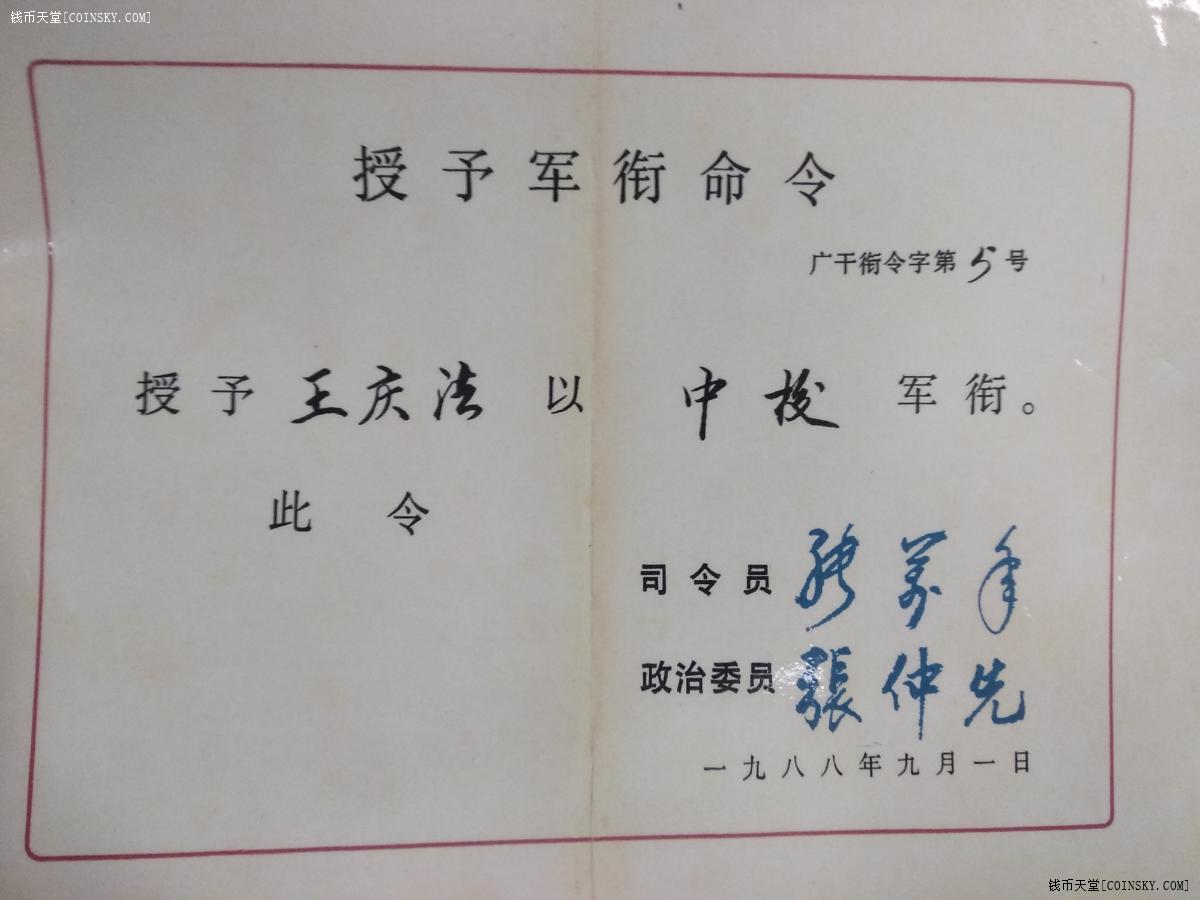 钱币天堂[COINSKY.COM]
授予军衔命令
广干衔令字第5号
授予王庆法以中校军衔。
此令
司令员 张万年
政治委员 張仲先
一九八八年九月一日
钱币天堂[COINSKY.COM]